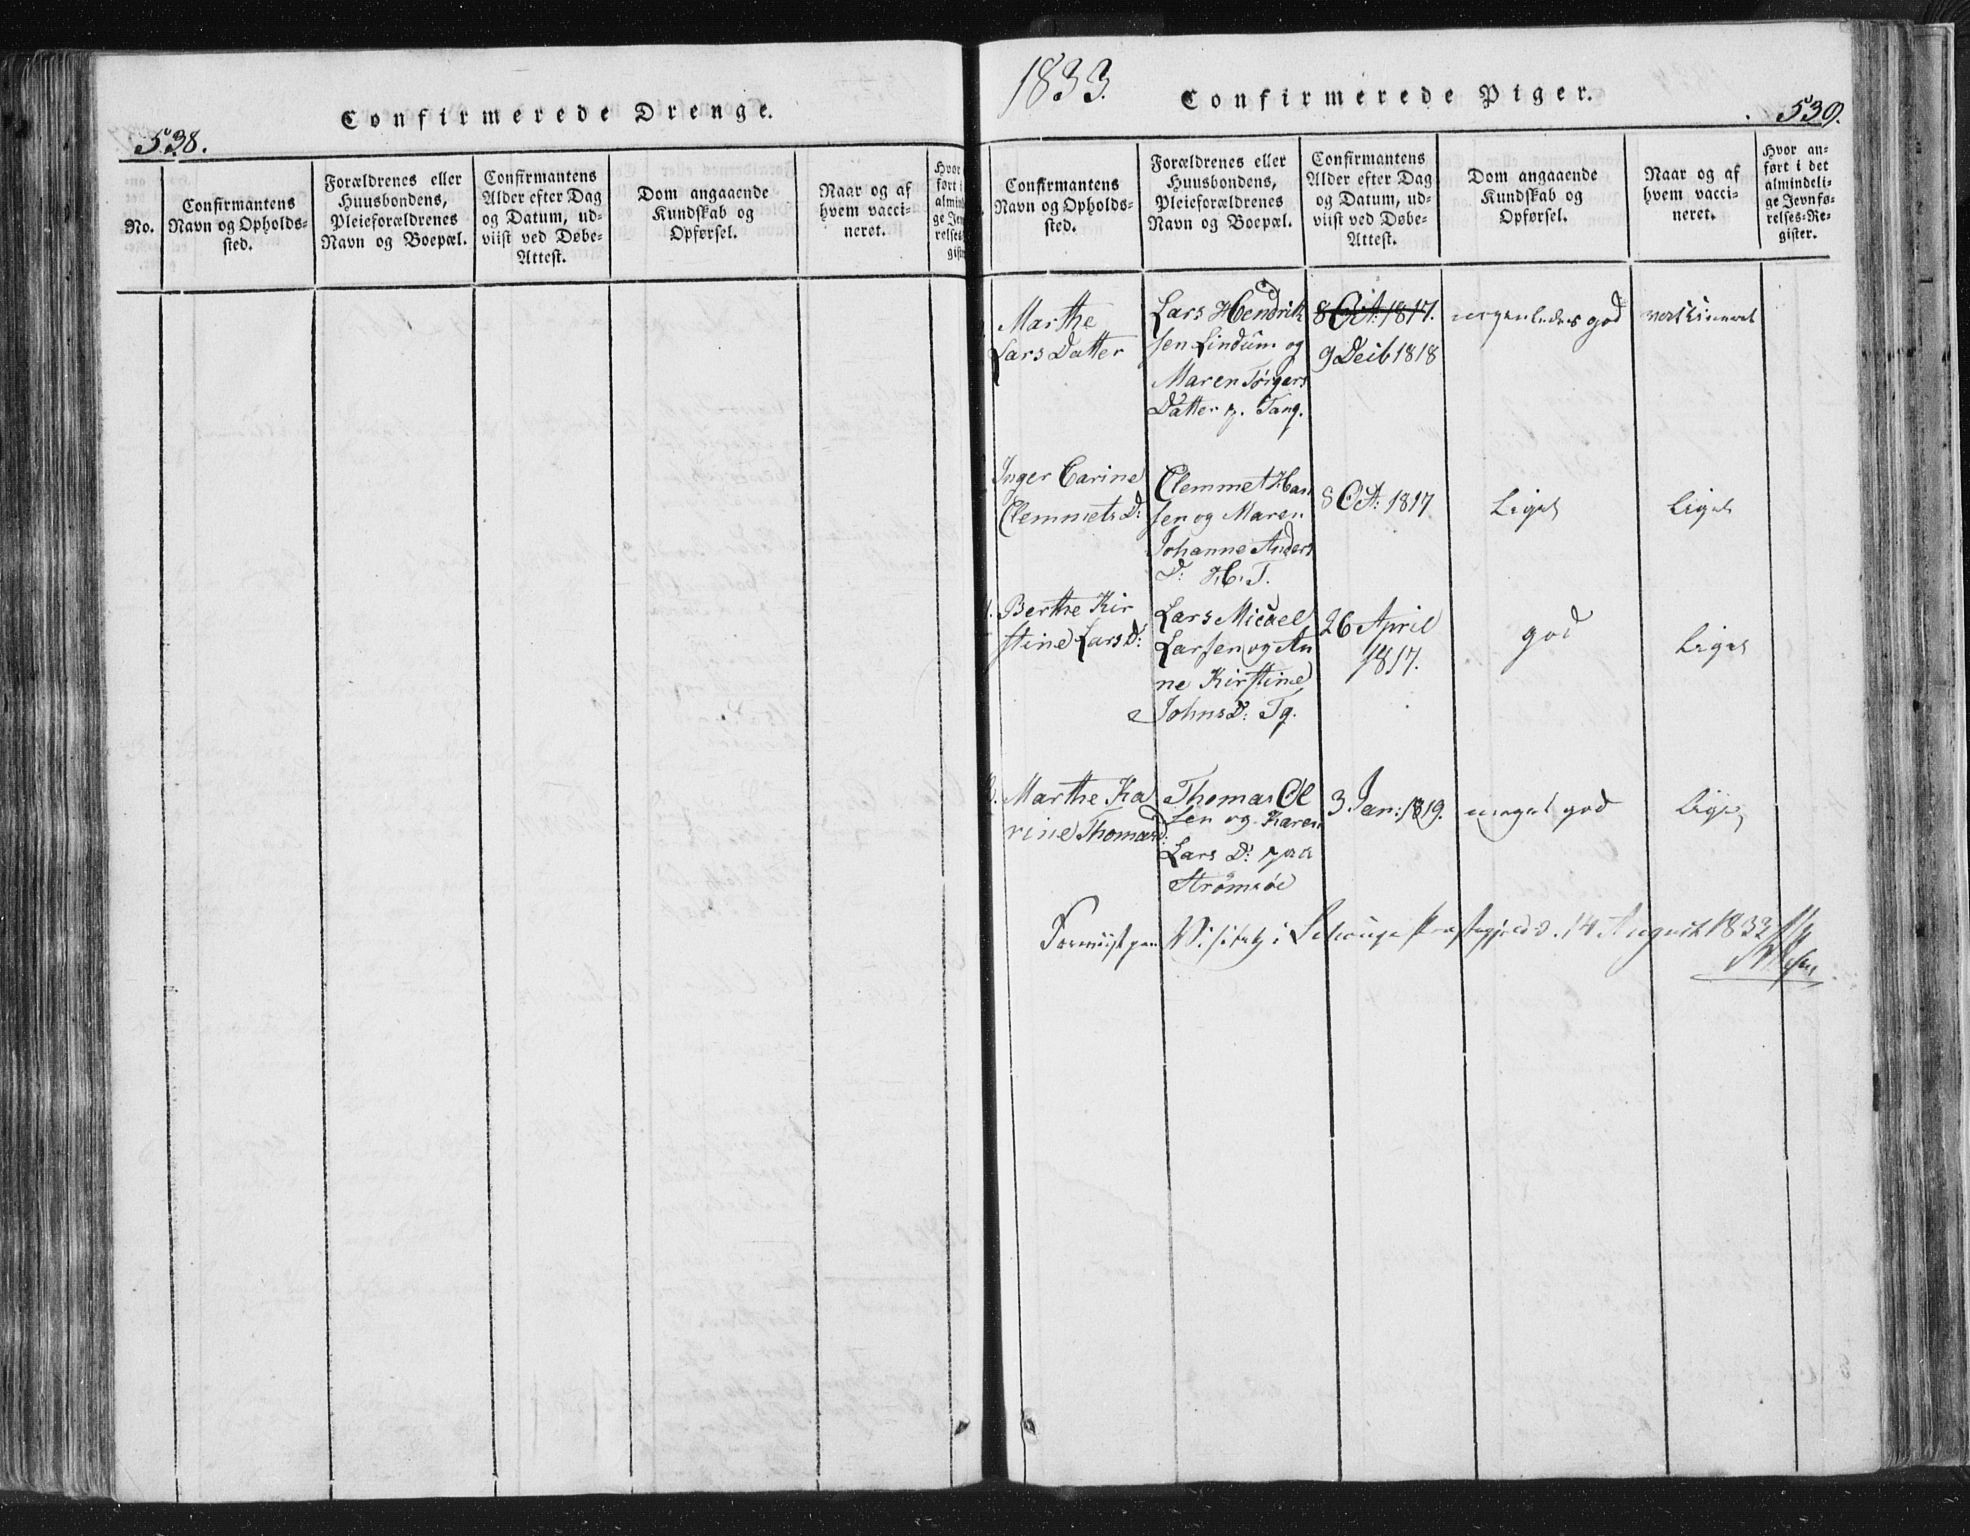 538.
Confirmerede Drenge.
No.
Confirmantens
Navn og Opholds-
sted.
Forældrenes eller
Huusbondens,
Pleieforældrenes
Navn og Boepæl.
Confirmantens
Alder efter Dag
og Datum, ud-
viist ved Døbe-
Attest.
Dom angaaende
Kundskab og
Opførsel.
Naar og af
hvem vacci-
neret.
Hvor
ført i
almind
ge Jev
relses
gist
1833.
Confirmerede Piger.
539.
Confirmantens
Navn og Opholds-
sted.
Forældrenes eller
Huusbondens,
Pleieforældrenes
Navn og Boepæl.
Confirmantens
Alder efter Dag
og Datum, ud-
viist ved Døbe-
Attest.
Dom angaaende
Kundskab og
Opførsel.
Naar og af
hvem vacci-
neret.
Hvor an-
ført i det
almindeli-
ge Jevnfø-
relses-Re-
gister.
Marthe
Lars Datter
Lars Hendrik
sen Lindum og
Maren Törgers
Datter p. Tang.
8 Oct: 1817.
9 Decb 1818
nogenledes god
vaccineret
Inger Carine
Clemmets D:
Clemmet Han
sen og Maren
Johanne Anders
D: H. T.
8 Oct: 1817
Ligel
Ligel
Berthe Kir
stine Lars D:
Lars Micael
Larsen og An
ne Kirstine
Johns D: Tg.
26 April
1817.
god
Ligel
Marthe Ka
rine Thomas D:
Thomas Ol
sen og Karen
Lars D: paa
Strömsöe
3 Jan: 1819.
meget god
Lige
Visitatz i
Præstegjeld d. 14 August 1832